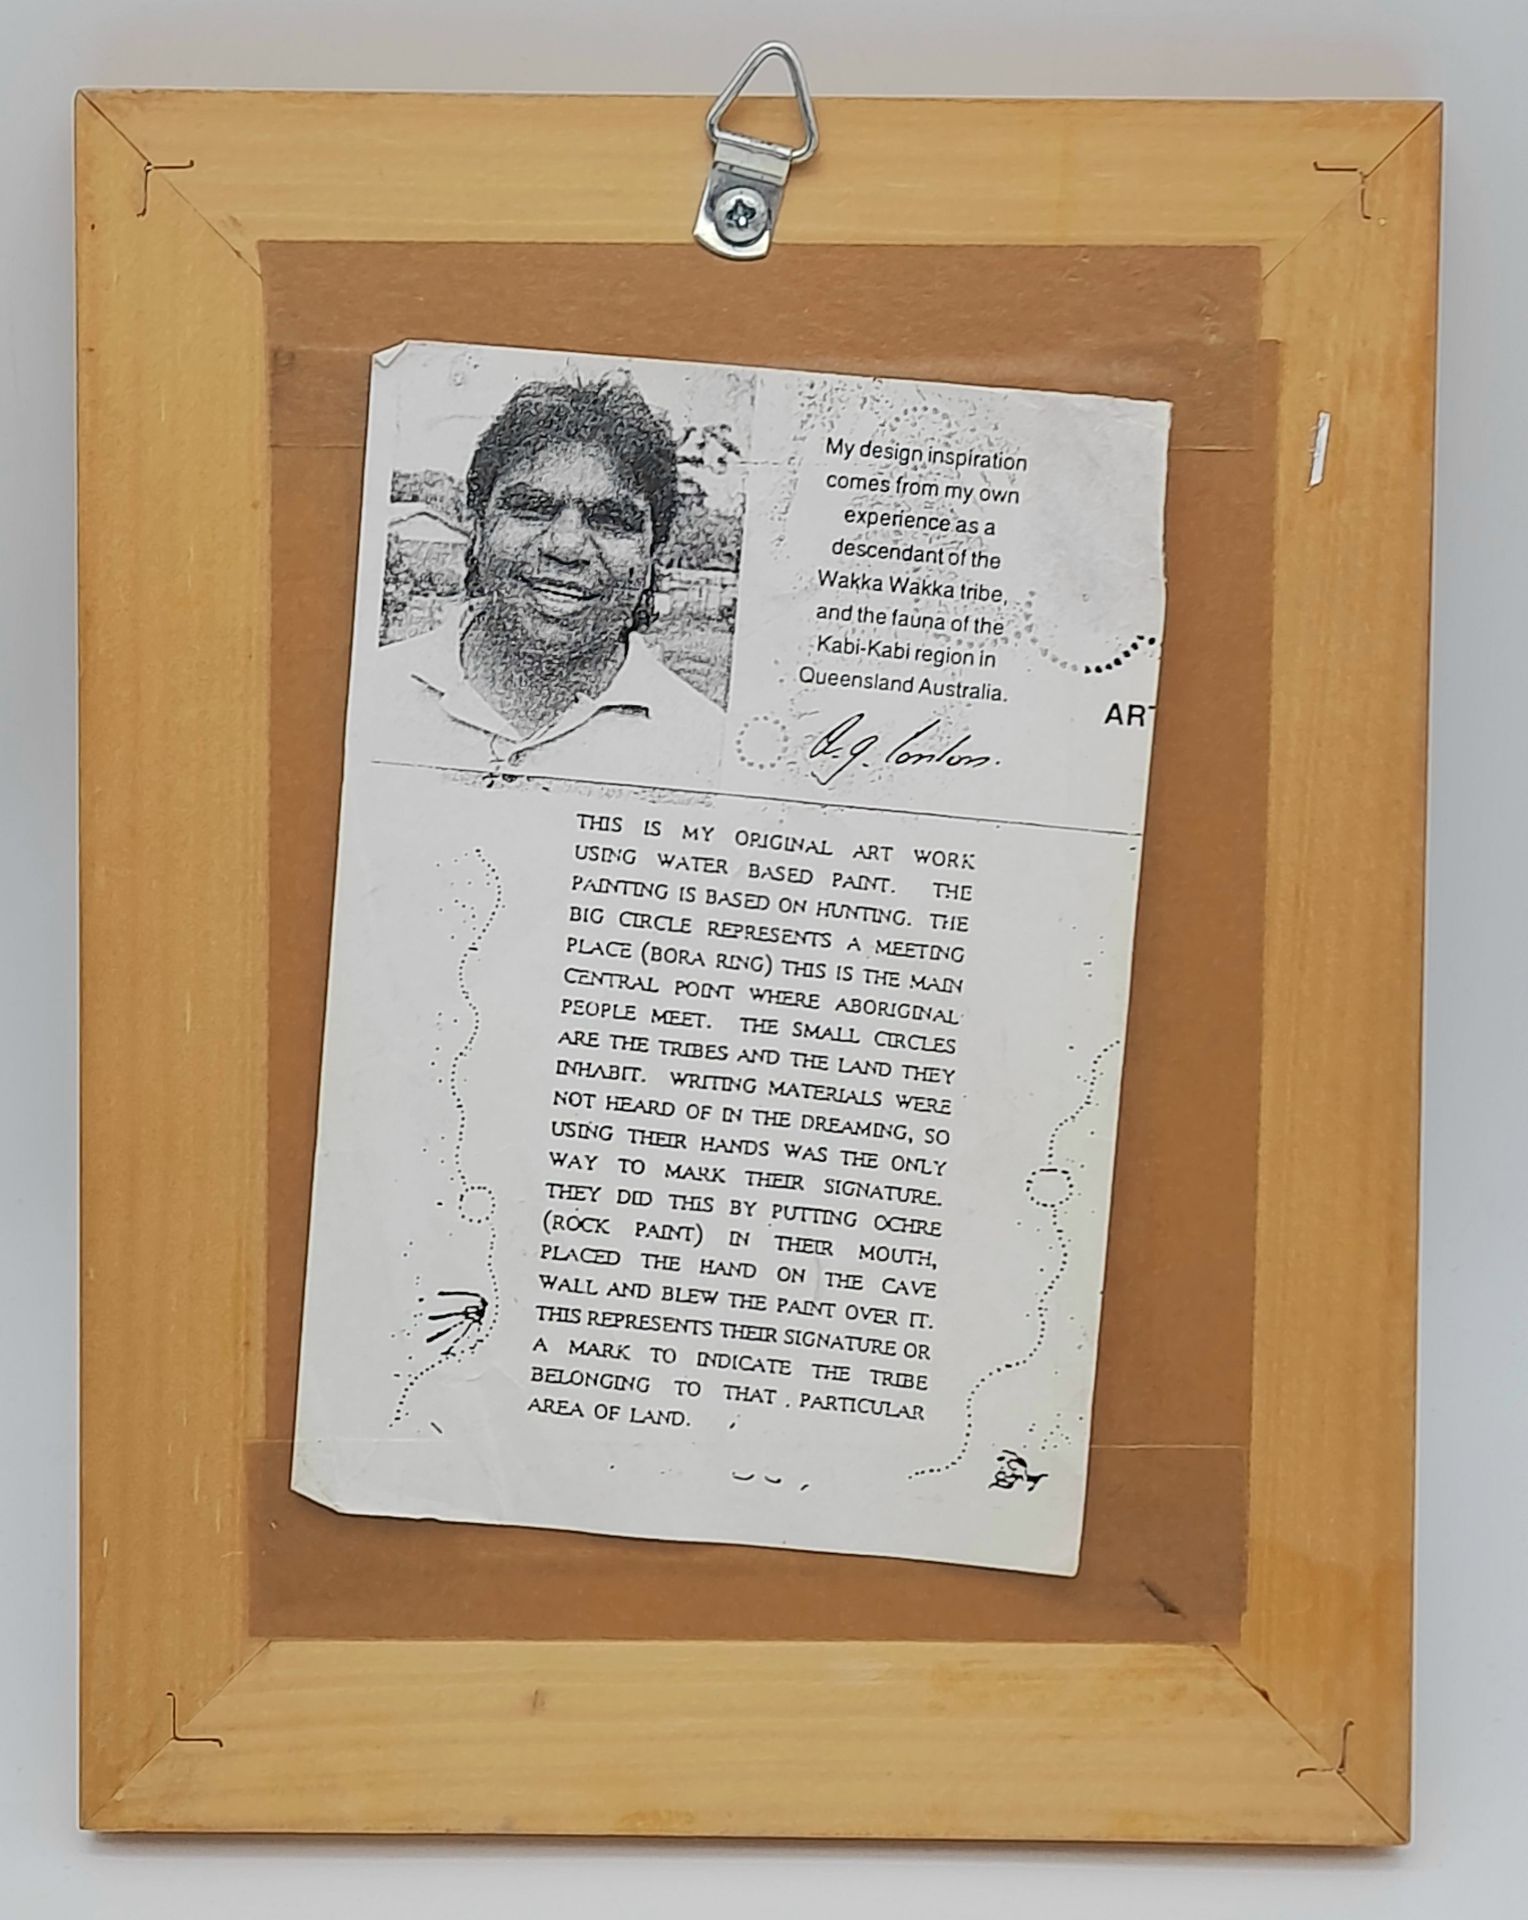 My design inspiration
comes from my own
experience as a
descendant of the
Wakka Wakka tribe,
and the fauna of the
Kabi-Kabi region in
Queensland Australia.
AR
THIS IS MY ORIGINAL ART WORK
USING WATER BASED PAINT. THE
PAINTING IS BASED ON HUNTING. THE
BIG CIRCLE REPRESENTS A MEETING
PLACE (BORA RING) THIS IS THE MAIN
CENTRAL POINT WHERE ABORIGINAL
PEOPLE MEET. THE SMALL CIRCLES
ARE THE TRIBES AND THE LAND THEY
INHABIT. WRITING MATERIALS WERE
NOT HEARD OF IN THE DREAMING, SO
USING THEIR HANDS WAS THE ONLY
WAY TO MARK THEIR SIGNATURE.
THEY DID THIS BY PUTTING OCHRE
(ROCK PAINT) IN THEIR MOUTH,
PLACED THE HAND ON THE CAVE
WALL AND BLEW THE PAINT OVER IT.
THIS REPRESENTS THEIR SIGNATURE OR
A MARK TO INDICATE THE TRIBE
BELONGING TO THAT PARTICULAR
AREA OF LAND.